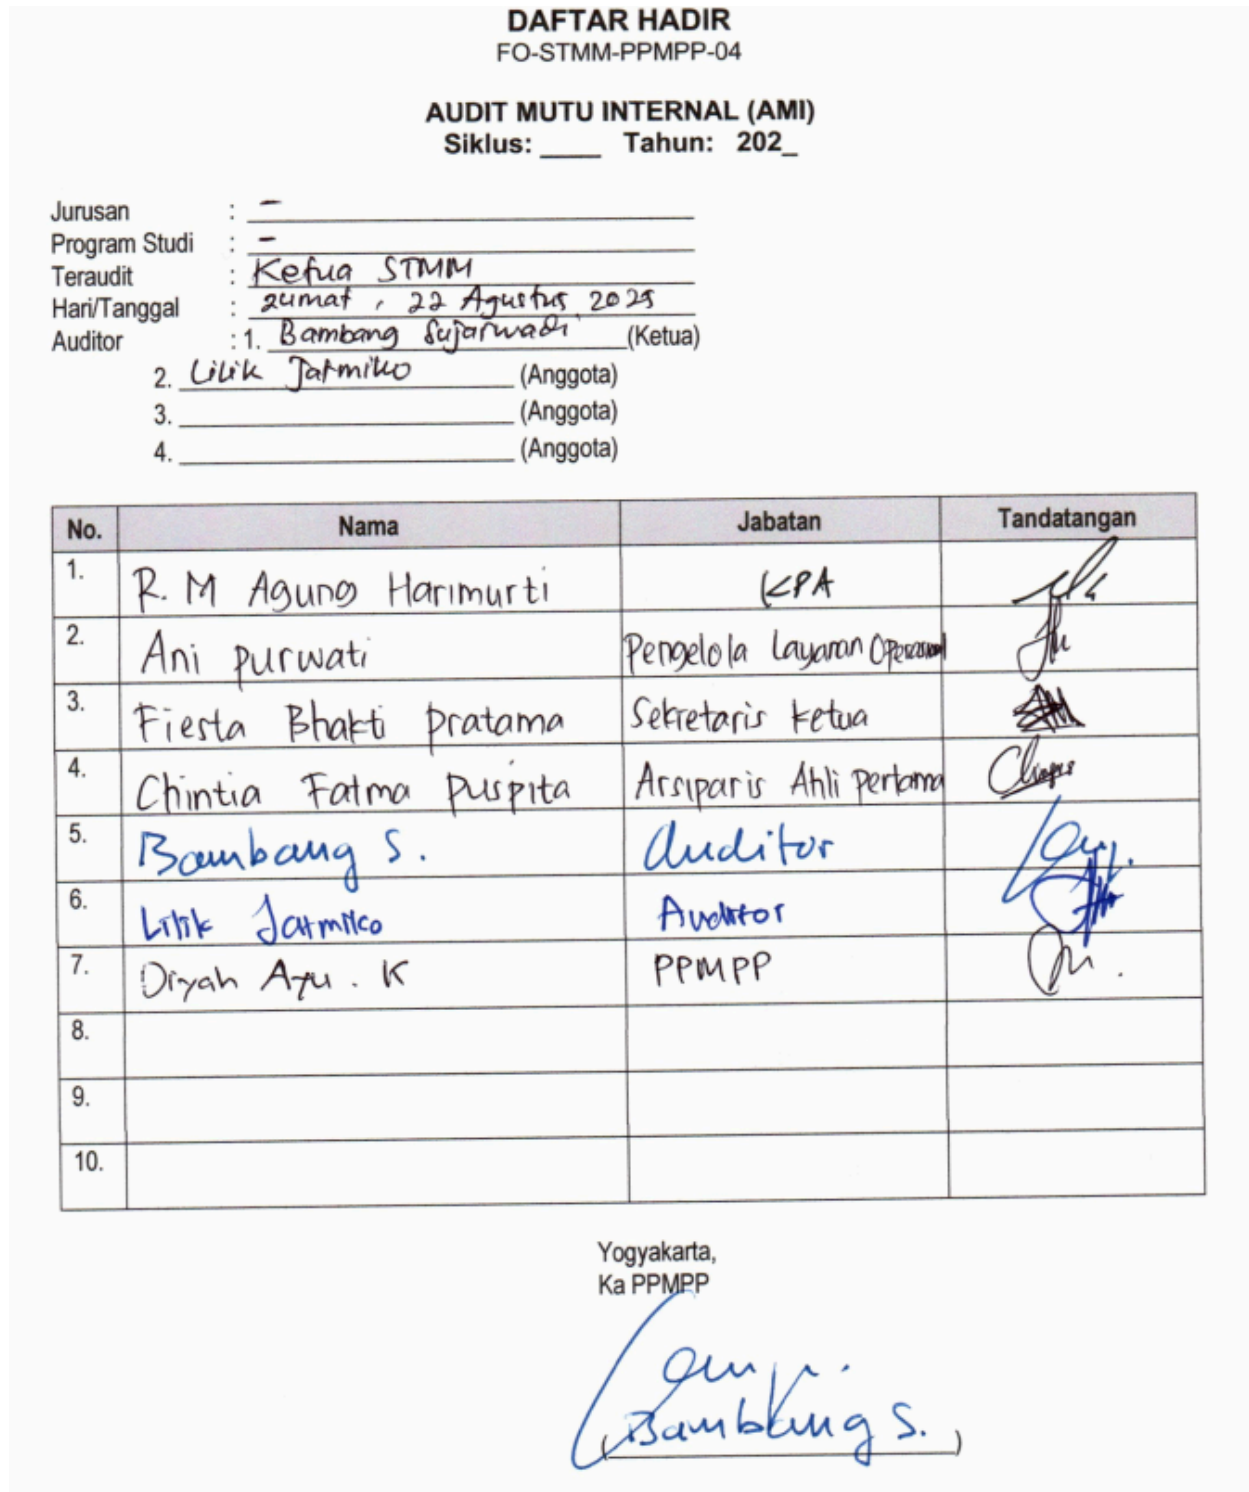 DAFTAR HADIR
FO-STMM-PPMPP-04
AUDIT MUTU INTERNAL (AMI)
Siklus: ____ Tahun: 202_
Jurusan : -
Program Studi : -
Teraudit : Ketua STMM
Hari/Tanggal : Jumat, 22 Agustus 2025
Auditor : 1. Bambang Sujarwadi (Ketua)
2. Lilik Jatmiko (Anggota)
3. ____ (Anggota)
4. ____ (Anggota)
No. Nama Jabatan Tandatangan
1. R. M Agung Harimurti KPA
2. Ani purwati Pengelola Layanan Operasional
3. Fiesta Bhakti pratama Sekretaris ketua
4. Chintia Fatma puspita Arsiparis Ahli Pertama
5. Bambang S. Auditor
6. Lilik Jatmiko Auditor
7. Diyah Ayu. K PPMPP
8.
9.
10.
Yogyakarta,
Ka PPMPP
(Bambang S.)